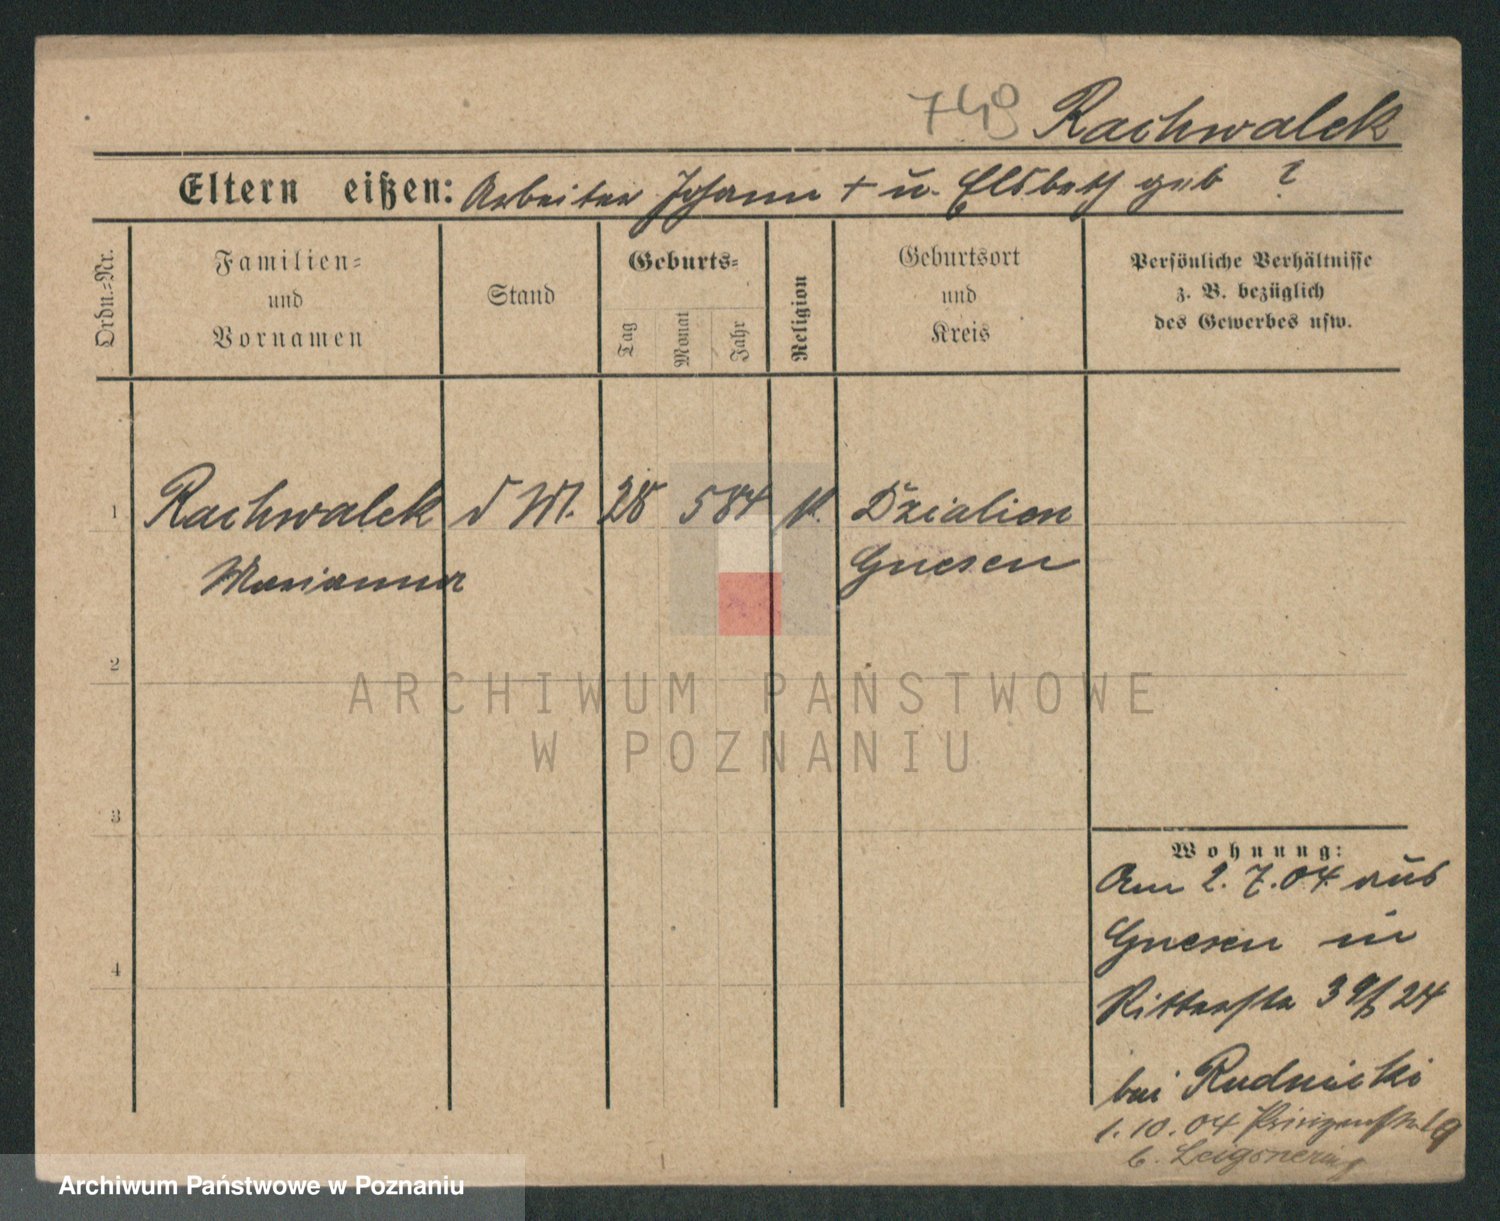 748 Rachwalek
Eltern eißen: Arbeiter Johann + u. Elsbeth geb ?
Ordn.=Nr.
Familien=
und
Vornamen
Stand
Geburts=
Tag
Monat
Jahr
Religion
Geburtsort
und
Kreis
Persönliche Verhältnisse
z. B. bezüglich
des Gewerbes usw.
1 Rachwalek d M. 28 5 84 k. Dzialion
Marianna Gnesen
2
ARCHIWUM PAŃSTWOWE
W POZNANIU
3
Wohnung:
Am 2.7.04 aus
Gnesen in
4
Ritterstr 39/ 24
bei Rudnicki
1.10.04 Prinzenstr. 19
b.
Archiwum Państwowe w Poznaniu